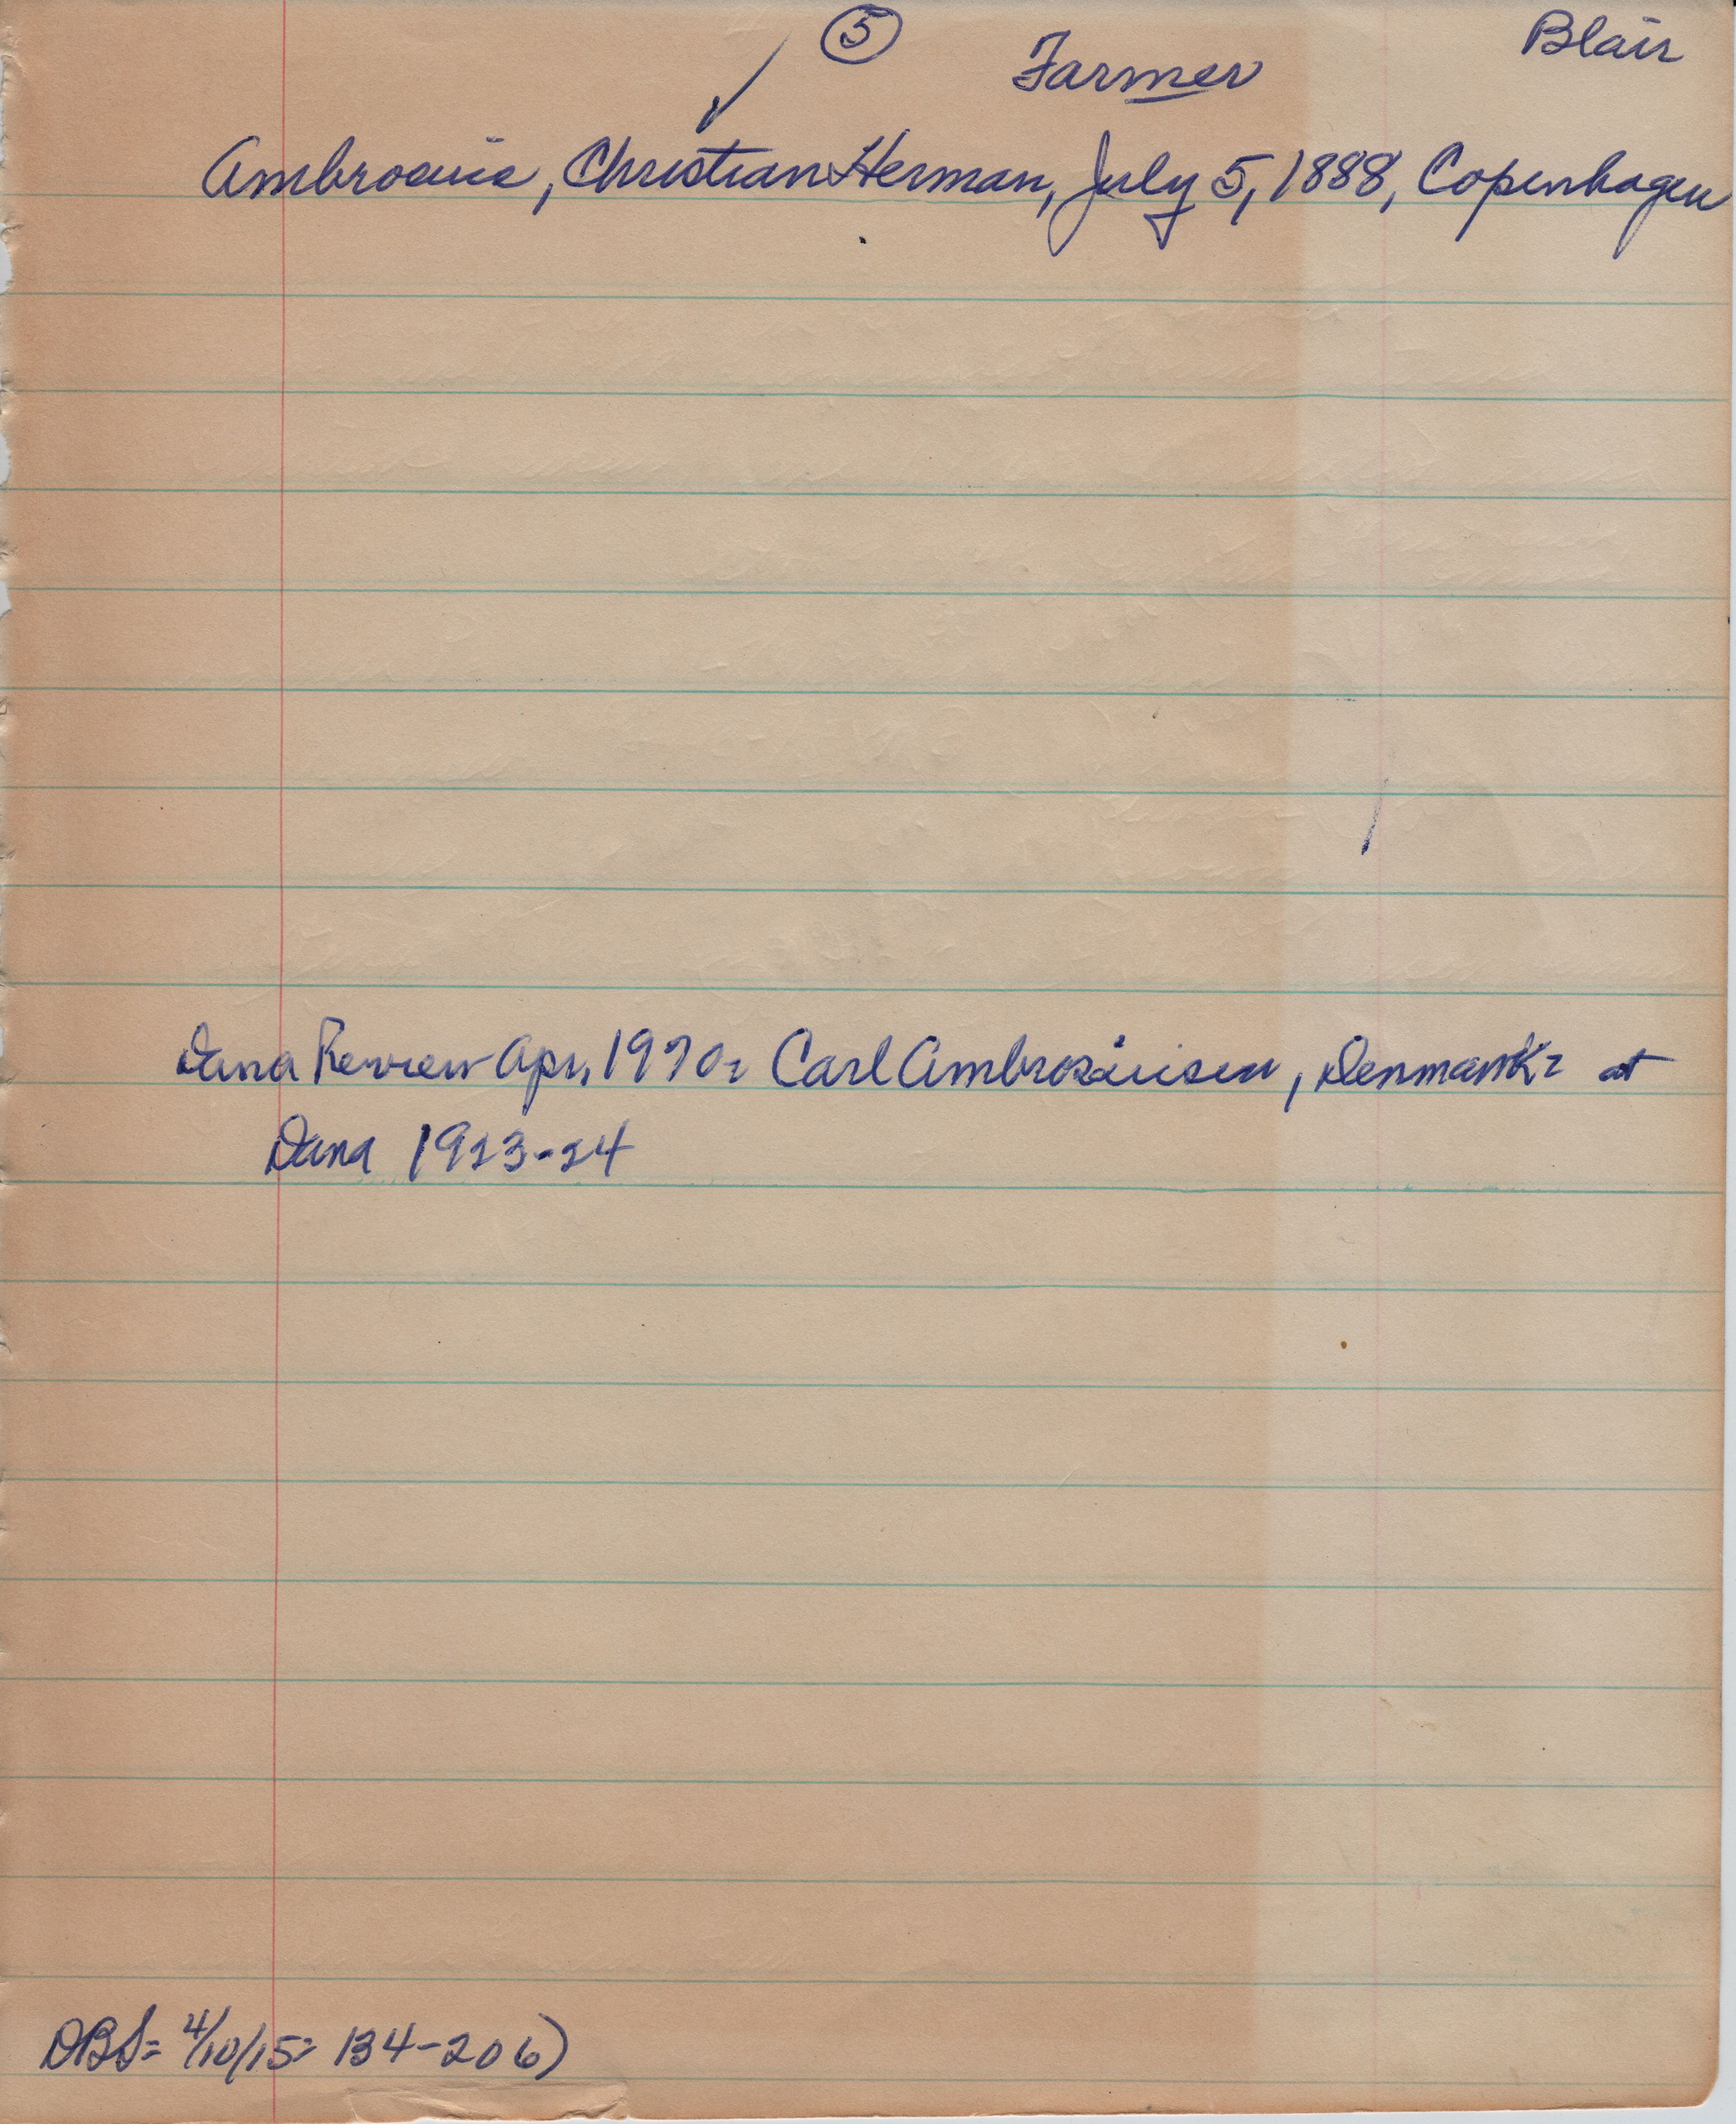 5
Blair
Farmer
Ambrosius, Christian Herman, July 5, 1888, Copenhagen
Dana Review Apr. 1970= Carl Ambrosiusen, Denmark= at
Dana 1923-24
DBS= 4/10/15= 134-206)